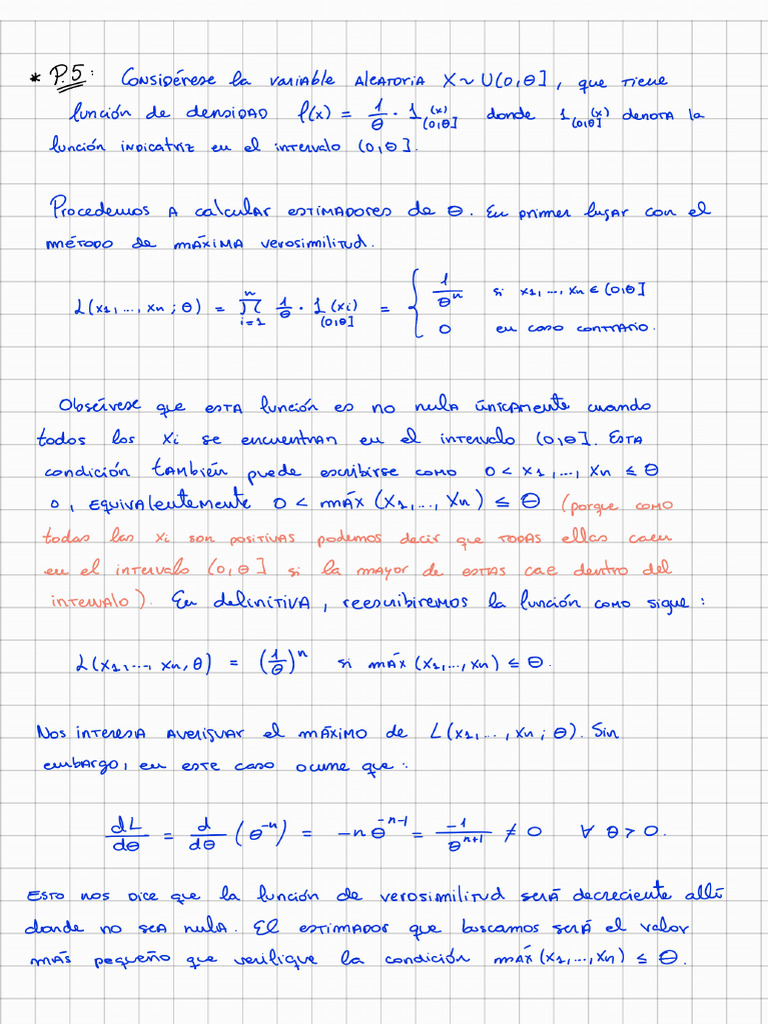 * P.5: Considérese la variable aleatoria X ~ U(0,θ], que tiene
función de densidad f(x) = 1/θ · 1_(0,θ](x) donde 1_(0,θ](x) denota la
función indicatriz en el intervalo (0,θ].
Procedemos a calcular estimadores de θ. En primer lugar con el
método de máxima verosimilitud.
L(x1,...,xn ; θ) = ∏_{i=1}^{n} 1/θ · 1_(0,θ](xi) = { 1/θ^n si x1,...,xn ∈ (0,θ]
0 en caso contrario.
Obsérvese que esta función es no nula únicamente cuando
todos los xi se encuentran en el intervalo (0,θ]. Esta
condición también puede escribirse como 0 < x1,..., xn ≤ θ
o, equivalentemente 0 < máx (x1,..., xn) ≤ θ (porque como
todas las xi son positivas podemos decir que todas ellas caen
en el intervalo (0,θ] si la mayor de estas cae dentro del
intervalo). En definitiva, reescribiremos la función como sigue:
L(x1,..., xn, θ) = (1/θ)^n si máx (x1,...,xn) ≤ θ.
Nos interesa averiguar el máximo de L(x1,..., xn ; θ). Sin
embargo, en este caso ocurre que:
dL/dθ = d/dθ (θ^-n) = -n θ^-n-1 = -1/θ^n+1 ≠ 0 ∀ θ > 0.
Esto nos dice que la función de verosimilitud será decreciente allí
donde no sea nula. El estimador que buscamos será el valor
más pequeño que verifique la condición máx (x1,...,xn) ≤ θ.